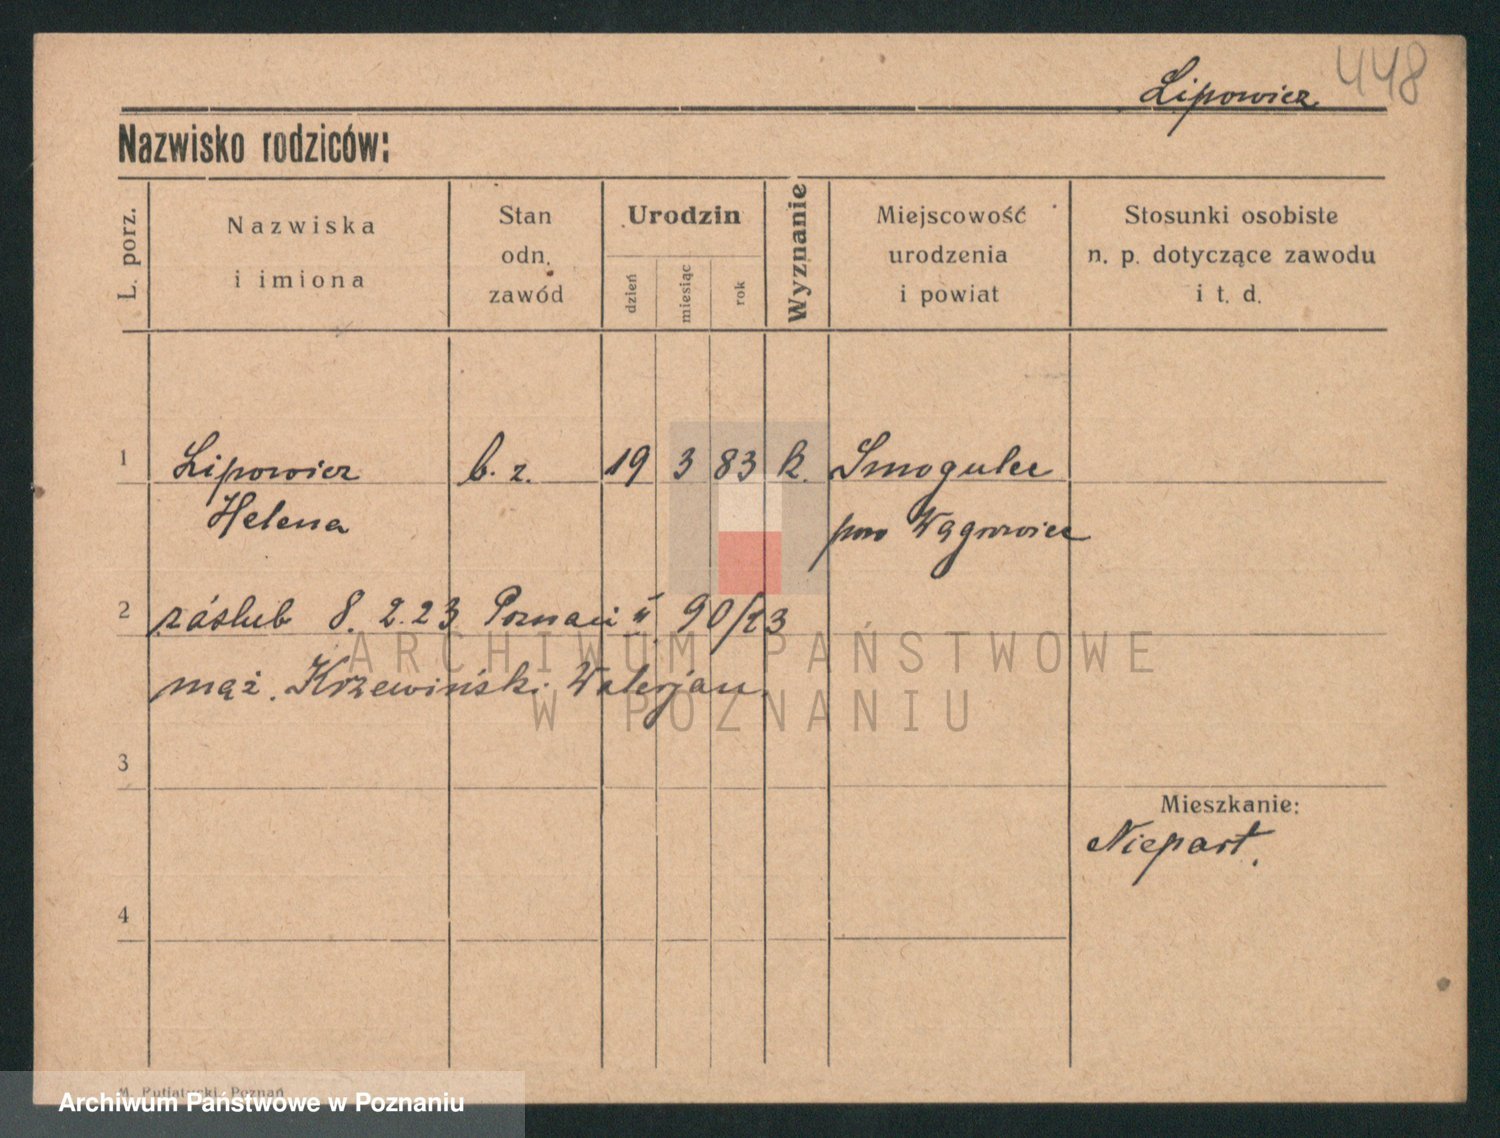 448
Lipowicz.
Nazwisko rodziców:
L. porz.
Nazwiska
i imiona
Stan
odn.
zawód
Urodzin
dzień
miesiąc
rok
Wyznanie
Miejscowość
urodzenia
i powiat
Stosunki osobiste
n. p. dotyczące zawodu
i t. d.
1 Lipowicz b. z. 19 3 83 k. Smogulec
Helena pow Wągrowiec
2 záslub 8. 2.23 Poznań II 90/23
mąż. Krzewiński Walerjan.
3
Mieszkanie:
Niepart.
4
ARCHIWUM PAŃSTWOWE
W POZNANIU
M. Putiatycki, Poznań
Archiwum Państwowe w Poznaniu